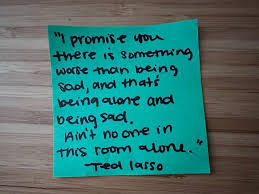 "I promise you
there is something
worse than being
sad, and that's
being alone and
being sad.
Ain't no one in
this room alone."
Ted lasso